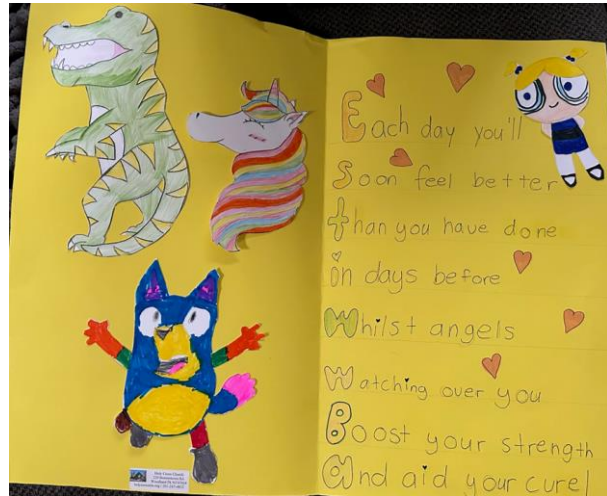 Each day you'll
Soon feel better
than you have done
in days before
Whilst angels
Watching over you
Boost your strength
and aid your cure!